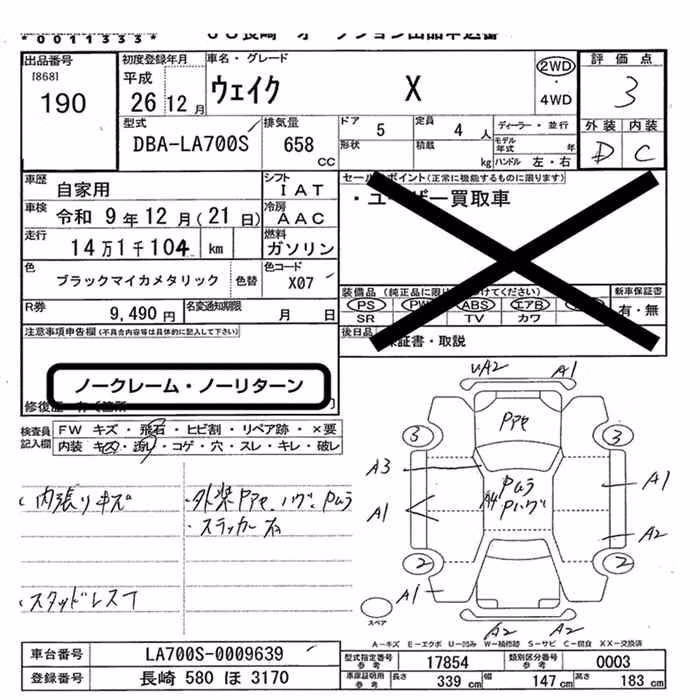 *0011333*
JU長崎 オークション出品申込書
出品番号
[868]
190
初度登録年月
平成
26 12月
車名・グレード
ウェイク X
2WD
・
4WD
評価点
3
外装 内装
D C
型式
DBA-LA700S
排気量
658
CC
ドア
5
定員
4人
形状
積載
kg
ディーラー・並行
モデル年式
年
ハンドル 左・右
車歴
自家用
シフト
IAT
車検
令和 9年12月(21日)
冷房
AAC
走行
14万1千104 km
燃料
ガソリン
色
ブラックマイカメタリック
色替
色コード
X07
R券
9,490円
名変通知期限
月 日
セールスポイント(正常に機能するものに限ります)
・ユーザー買取車
装備品(純正品に限り○を付けてください)
PS PW ABS エアB
SR TV カワ
新車保証書
有・無
後日品
保証書・取説
注意事項申告欄(不具合内容等は具体的に記入して下さい)
ノークレーム・ノーリターン
修復歴 有(箇所 )
検査員
記入欄
FW キズ・飛石・ヒビ割・リペア跡・×要
内装 キズ・汚れ・コゲ・穴・スレ・キレ・破レ
内張りキズ
・外装Pアセ、ハゲ、Pムラ
・ステッカー
スタッドレス
UA2 A1
Pアセ
3 3
A3
A4
Pムラ
Pハゲ
A1
A1
A2
2 2
A1
A2 A2
スペア
A-キズ E-エクボ U-凹み W-補修跡 S-サビ C-腐食 XX-交換済
車台番号
LA700S-0009639
登録番号
長崎 580 ほ 3170
型式指定番号
参考
17854
類別区分番号
参考
0003
車庫証明用
参考
長さ
339 cm
幅
147 cm
高さ
183 cm